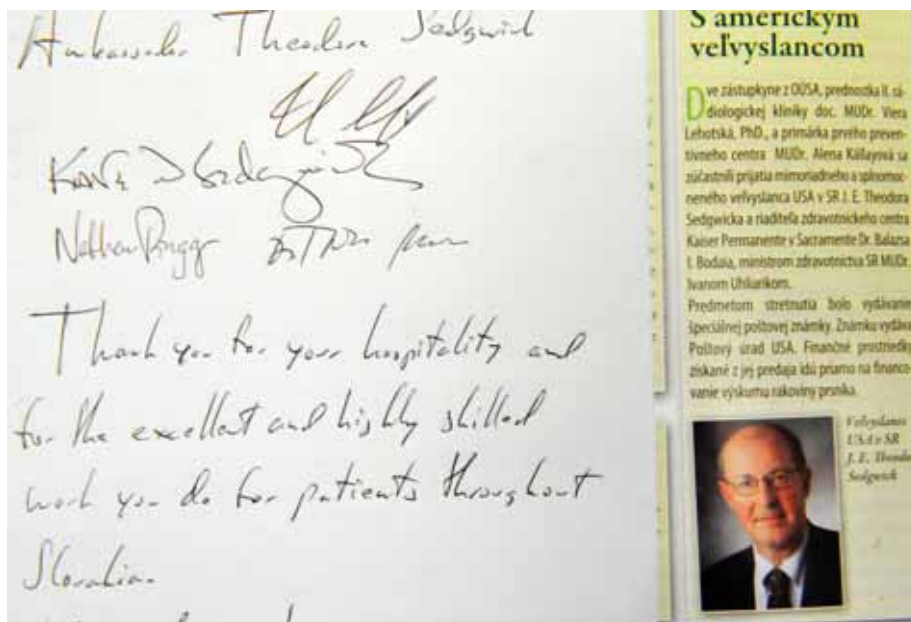 Ambassador Theodore Sedgwick
Kate W Sedgwick
Thank you for your hospitality and
for the excellent and highly skilled
work you do for patients throughout
Slovakia.
S americkým
veľvyslancom
Dve zástupkyne z OÚSA, prednostka II. rá-
diologickej kliniky doc. MUDr. Viera
Lehotská, PhD., a primárka prvého preven-
tívneho centra MUDr. Alena Kállayová sa
zúčastnili prijatia mimoriadneho a splnomoc-
neného veľvyslanca USA v SR J. E. Theodora
Sedgwicka a riaditeľa zdravotníckeho centra
Kaiser Permanente v Sacramente Dr. Balazsa
I. Bodaia, ministrom zdravotníctva SR MUDr.
Ivanom Uhliarikom.
Predmetom stretnutia bolo vydávanie
špeciálnej poštovej známky. Známku vydáva
Poštový úrad USA. Finančné prostriedky
získané z jej predaja idú priamo na financo-
vanie výskumu rakoviny prsníka.
Veľvyslanec
USA v SR
J. E. Theodo
Sedgwick